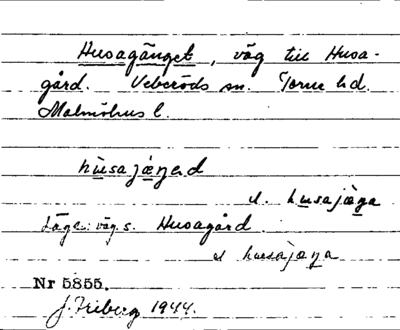 Husagänget, väg till Husa-
gård. Veberöds sn. Torna hd.
Malmöhus l.
hùsajæŋed
el. husajæŋa
Läge: väg s. Husagård.
el husajæŋa
Nr 5855.
J. Friberg 1944.